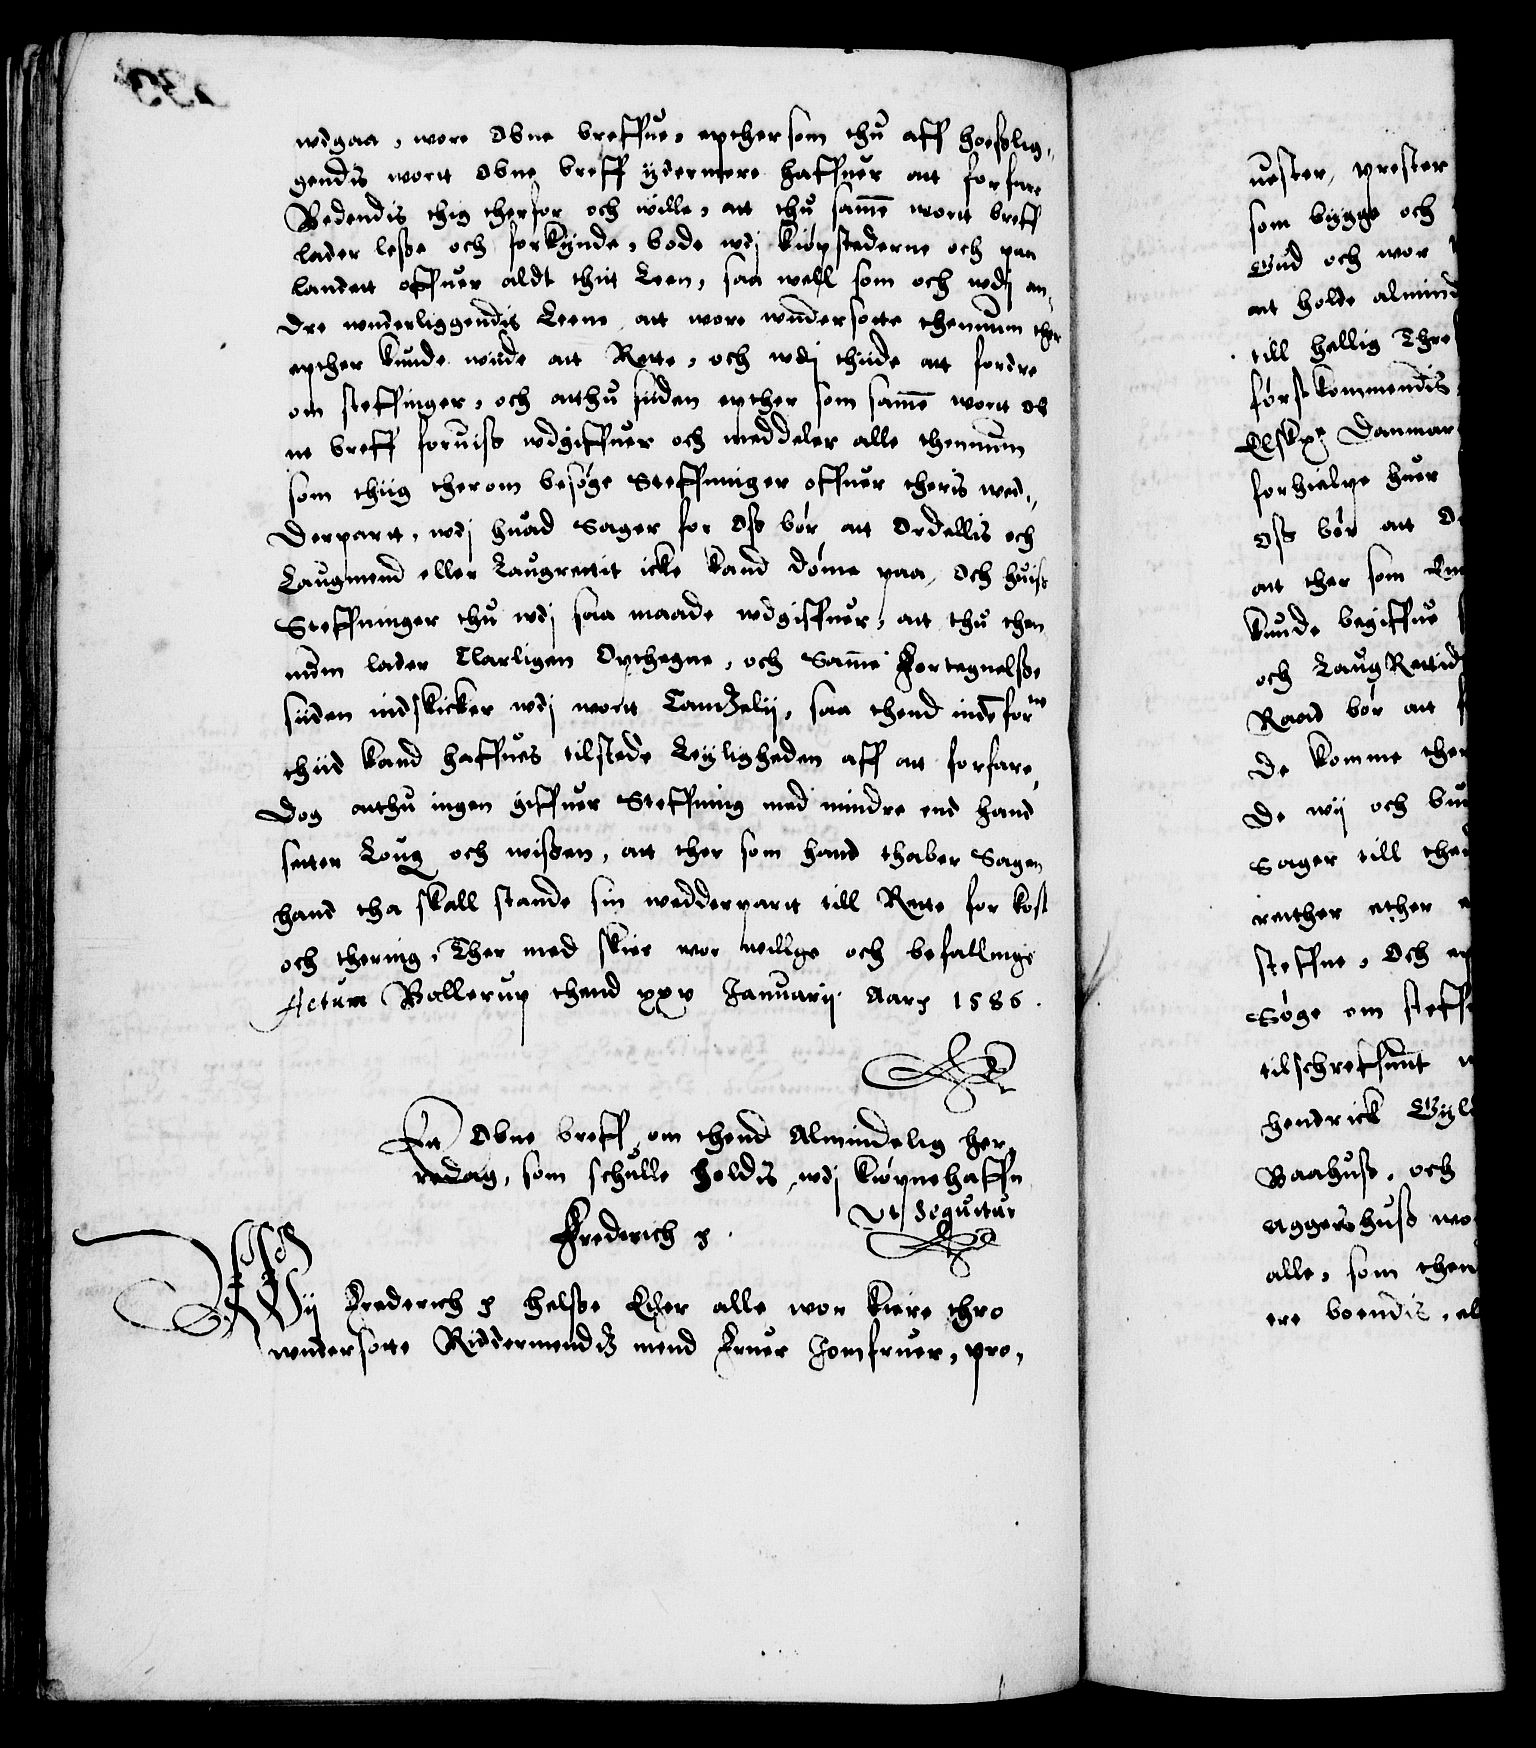 wdgaa, wore obne breffue, epthersom thu aff hosslig,,
gendis wortt obne breff ydermere haffuer att forfare
Bedendis thig therfor och wille, att thu samme wortt breff
lader lesse och forkynde, bode wdj kiøpstederne och paa
landett offuer aldt thitt Leen, saa well som och wdj an,
dre wnderliggendis Leene att wore wndersotte thennum ther
epther kunde wiide att Rette, och wdj thiide att fordre
om steffinger, och atthu siiden epther som samme wortt ob
ne breff foruiss wdgiffuer och meddeler alle thennum
som thiig therom besøge Steffninger offuer theris wed,,
derpartt, wdj huad Sager for oss bør att ordellis och
Laugmend eller Laugrettit icke kand døme paa, och huiss
Steffninger thu wdj saa maade wdgiffuer, att thu then
num lader Clarligen Opthegne, och samme Fortegnelsse
siiden indskicker wdj wortt Cantzelij, saa thend inden for ne
thiid kand haffues tilstede Leyligheden aff att forfare,
Dog atthu ingen giffuer Steffning med mindre end hand
setter Loug och wissen, att ther som hand thaber Sagen
hand tha skall stande sin wedderpartt till Rette for kost
och thering, Ther med skier wor willge och befallinge
Actum Ballerup thend xxv Januarij Aar 1586.
Ett Obne breff om thend Almindelig her,
redag, som schulle holdis wdj kiøpnehaffn
Ut Sequitur
Frederich
Wij Frederich helsse Ether alle wor kiere thro
wndersotte Riddermendz mend Fruer Jomfruer, pro,
uester, prester
som bygge och
Gud och wor
att holde almind
till hellig Thre
førstkommendis
Elske Danmar
forhielpe huer
oss bør att O
att ther som
kunde begiffue
och Laug Rettid
Raad bør att
de komme ther
de wij och
Sager till
retther ether
steffne, Och ep
Søge om steff
tilschreffuit
Hendrick Gyl
Baahuss, och
aggershuss wo
alle, som then
ere boendis, el